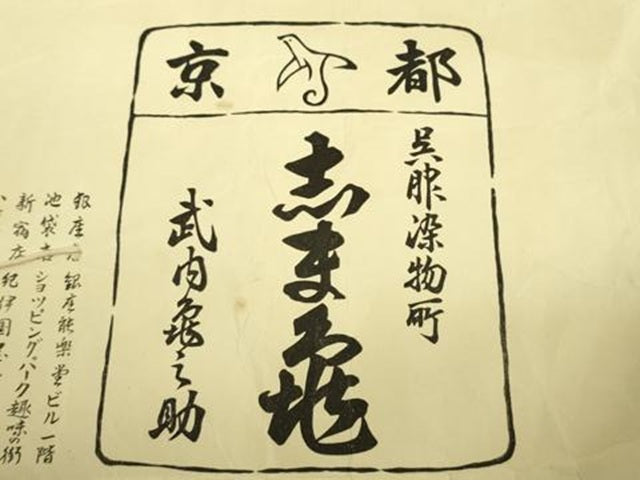 京都
呉服染物所
志ま亀
武内亀之助
銀座店 銀座能楽堂ビル一階
池袋店 ショツピングパーク趣味の街
新宿店 紀伊國屋